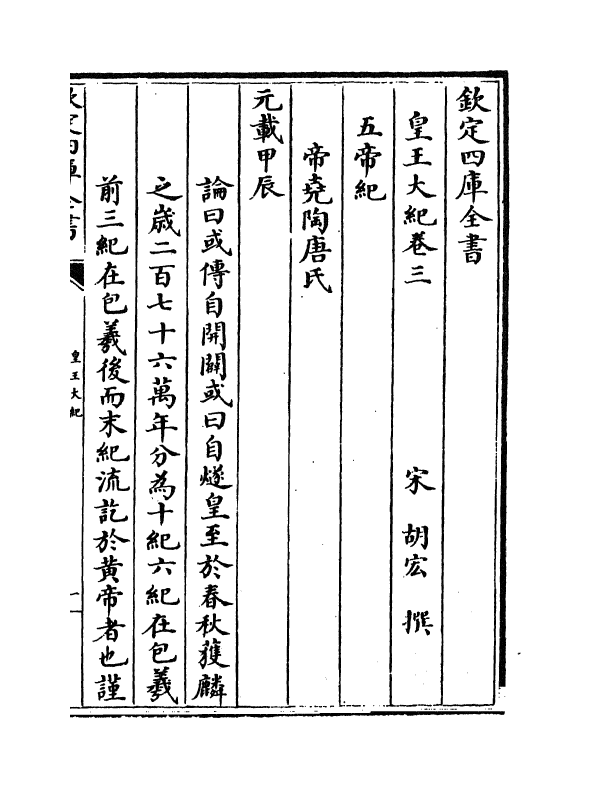 欽定四庫全書
皇王大紀卷三
宋 胡宏 撰
五帝紀
帝堯陶唐氏
元載甲辰
論曰或傳自開闢或曰自燧皇至於春秋獲麟
之歲二百七十六萬年分為十紀六紀在包羲
前三紀在包羲後而末紀流訖於黄帝者也謹
欽定四庫全書
皇王大紀
一